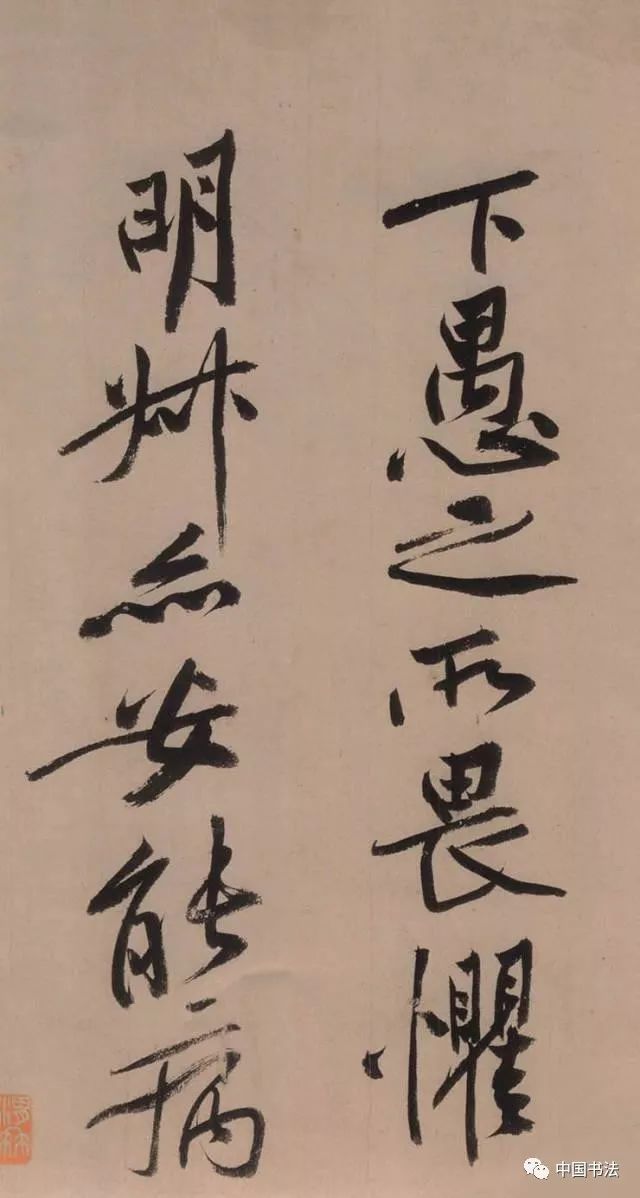 下愚之所畏懼
明叔亦安能病
中国书法